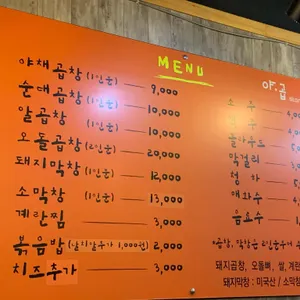 MENU
야채곱창 (1인분) — 9,000
순대곱창 (1인분) — 10,000
알곱창 (1인분) — 10,000
오돌곱창 (2인분) — 20,000
돼지막창 (1인분) — 12,000
소막창 (1인분) — 13,000
계란찜 — 3,000
볶음밥 (날치알추가 1,000원) 2,000
치즈추가 — 3,000
야.곱
소주
막걸리
청하
음료수
돼지곱창, 오돌뼈, 쌀, 계란
돼지막창 : 미국산 / 소막창